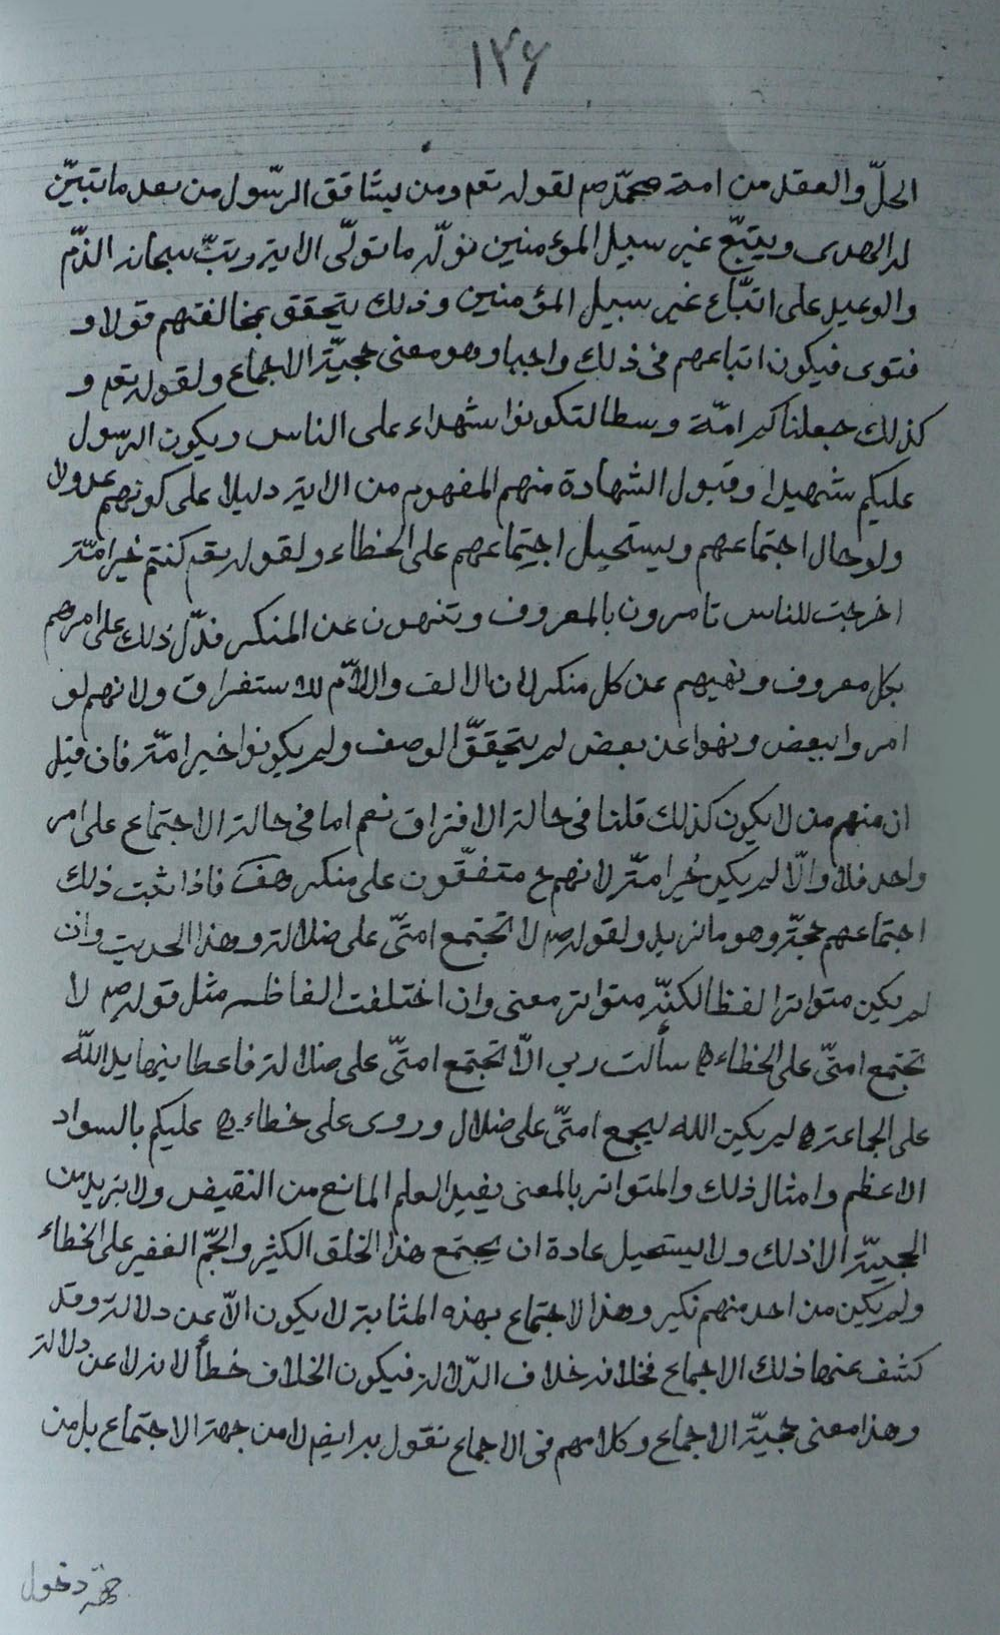 ١٢۶
الحلّ والعقد من امة محمّد ص لقوله تعم ومن يشاقق الرّسول من بعد ما تبيّن
له الهدى ويتبّع غير سبيل المؤمنين نولّه ما تولّى الاية رتبّ سبحانه الذّم
والوعيد على اتبّاع غير سبيل المؤمنين وذلك يتحقق بمخالفتهم قولا و
فتوى فيكون اتباعهم فى ذلك واجبا وهو معنى حجيّة الاجماع ولقوله تعم و
كذلك جعلناكم امّة وسطا لتكونوا شهداء على الناس ويكون الرسول
عليكم شهيدا وقبول الشهادة منهم المفهوم من الاية دليلا على كونهم عدولا
ولو حال اجتماعهم ويستحيل اجتماعهم على الخطاء ولقوله تعم كنتم خير امّة
اخرجت للناس تامرون بالمعروف وتنهون عن المنكر فدلّ ذلك على امرهم
بكل معروف ونهيهم عن كل منكر لان الالف واللاّم للاستغراق ولانهم لو
امروا ببعض ونهوا عن بعض لم يتحقّق الوصف ولم يكونوا خير امّة فان قيل
ان منهم من لا يكون كذلك قلنا فى حالة الافتراق نعم اما فى حالة الاجتماع على امر
واحد فلا والّا لم يكن خير امّة لانهم ح متفقّون على منكر هف فاذا ثبت ذلك
اجتماعهم حجّة وهو ما نريد ولقوله ص لا تجتمع امتّى على ضلالة وهذا الحديث وان
لم يكن متواترا لفظا لكنّه متواتر معنى وان اختلفت الفاظه مثل قوله ص لا
تجتمع امتّى على الخطاء سألت ربي الّا تجتمع امتّى على ضلالة فاعطانيها يد اللّه
على الجماعة لم يكن الله ليجمع امتّى على ضلال وروى على خطاء عليكم بالسواد
الاعظم وامثال ذلك والمتواتر بالمعنى يفيد العلم المانع من النقيض ولا نريد من
الحجيّة الا ذلك ولا يستحيل عادة ان يجتمع هذا الخلق الكثير والجّم الغفير على الخطاء
ولم يكن من احد منهم نكير وهذا الاجتماع بهذه المثابة لا يكون الاّ عن دلالة وقد
كشف عنها ذلك الاجماع فخلافه خلاف الدّلالة فيكون الخلاف خطأ لانه لا عن دلالة
وهذا معنى حجيّة الاجماع وكلامهم فى الاجماع نقول به ايض لا من جهة الاجتماع بل من
جهة دخول